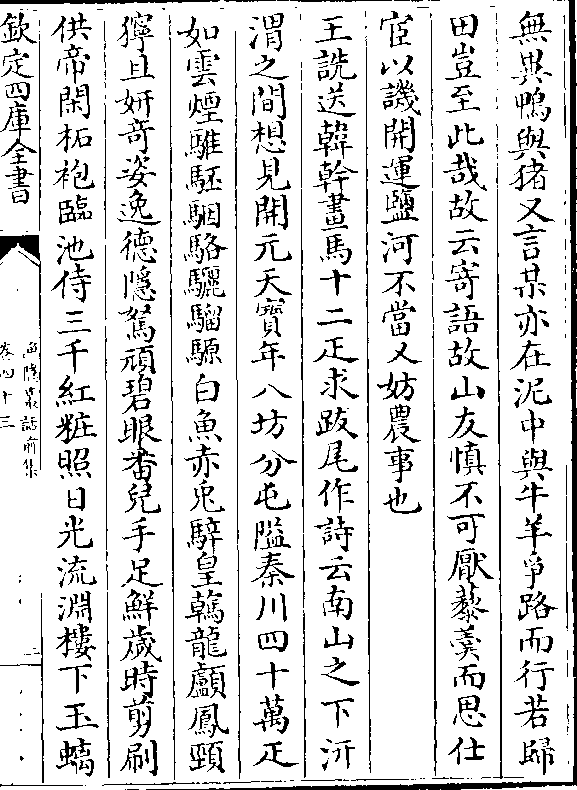 無異鴨與猪又言某亦在泥中與牛羊爭路而行若歸
田豈至此哉故云寄語故山友慎不可厭藜羮而思仕
宦以譏開運鹽河不當又妨農事也
王詵送韓幹畫馬十二疋求跋尾作詩云南山之下汧
渭之間想見開元天寶年八坊分屯隘秦川四十萬疋
如雲煙騅駓駰駱驪騮騵白魚赤兎騂皇鶾龍顱鳳頸
獰且妍奇姿逸德隱駑頑碧眼番兒手足鮮歲時剪刷
供帝閑柘袍臨池侍三千紅粧照日光流淵樓下玉螭
欽定四庫全書
漁隱叢話前集
卷四十三
二